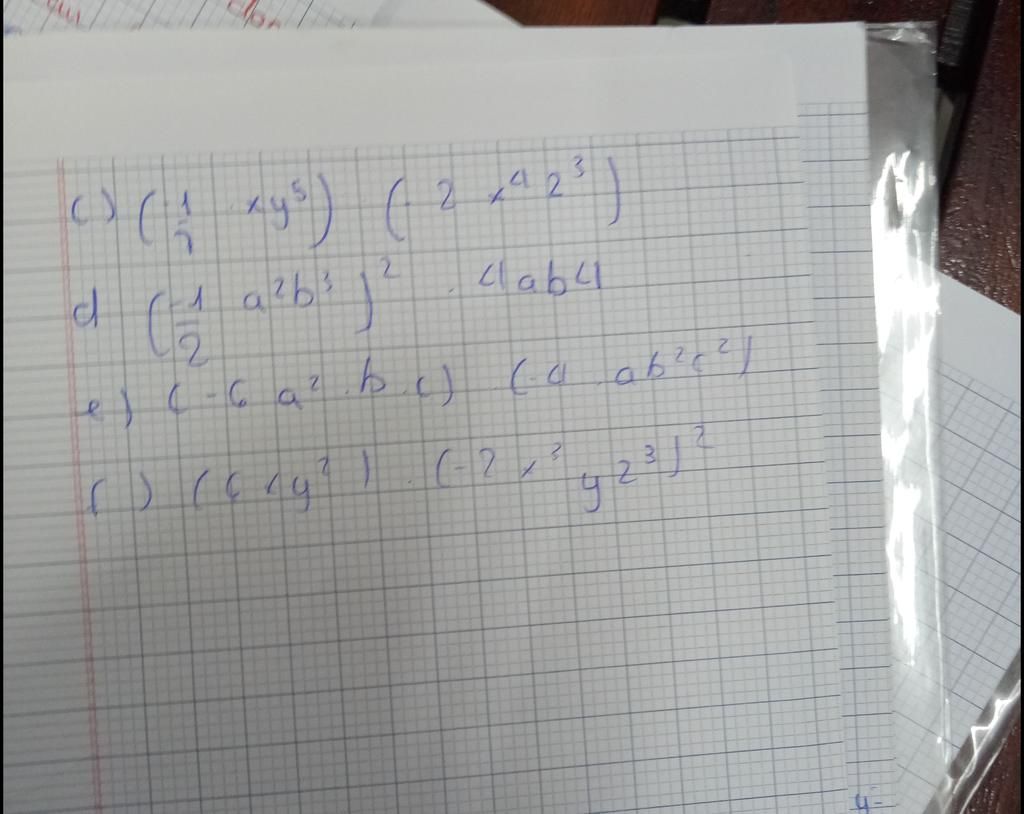 c) (1/7 xy⁵) (-2 x⁴ z³)
d (-1/2 a²b³)² . 4ab4
e) (-6 a² . b . c) (-4 . ab²c²)
f) (6xy²) . (-2 x³ y z³)²